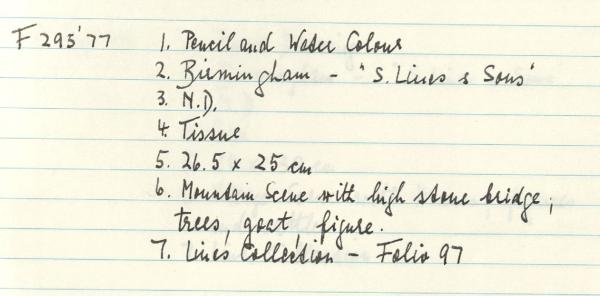 F 295'77 1. Pencil and Water Colour
2. Birmingham - "S. Lines & Sons"
3. N.D.
4. Tissue
5. 26.5 x 25 cm
6. Mountain Scene with high stone bridge,
trees, goat, figure.
7. Lines Collection - Folio 97